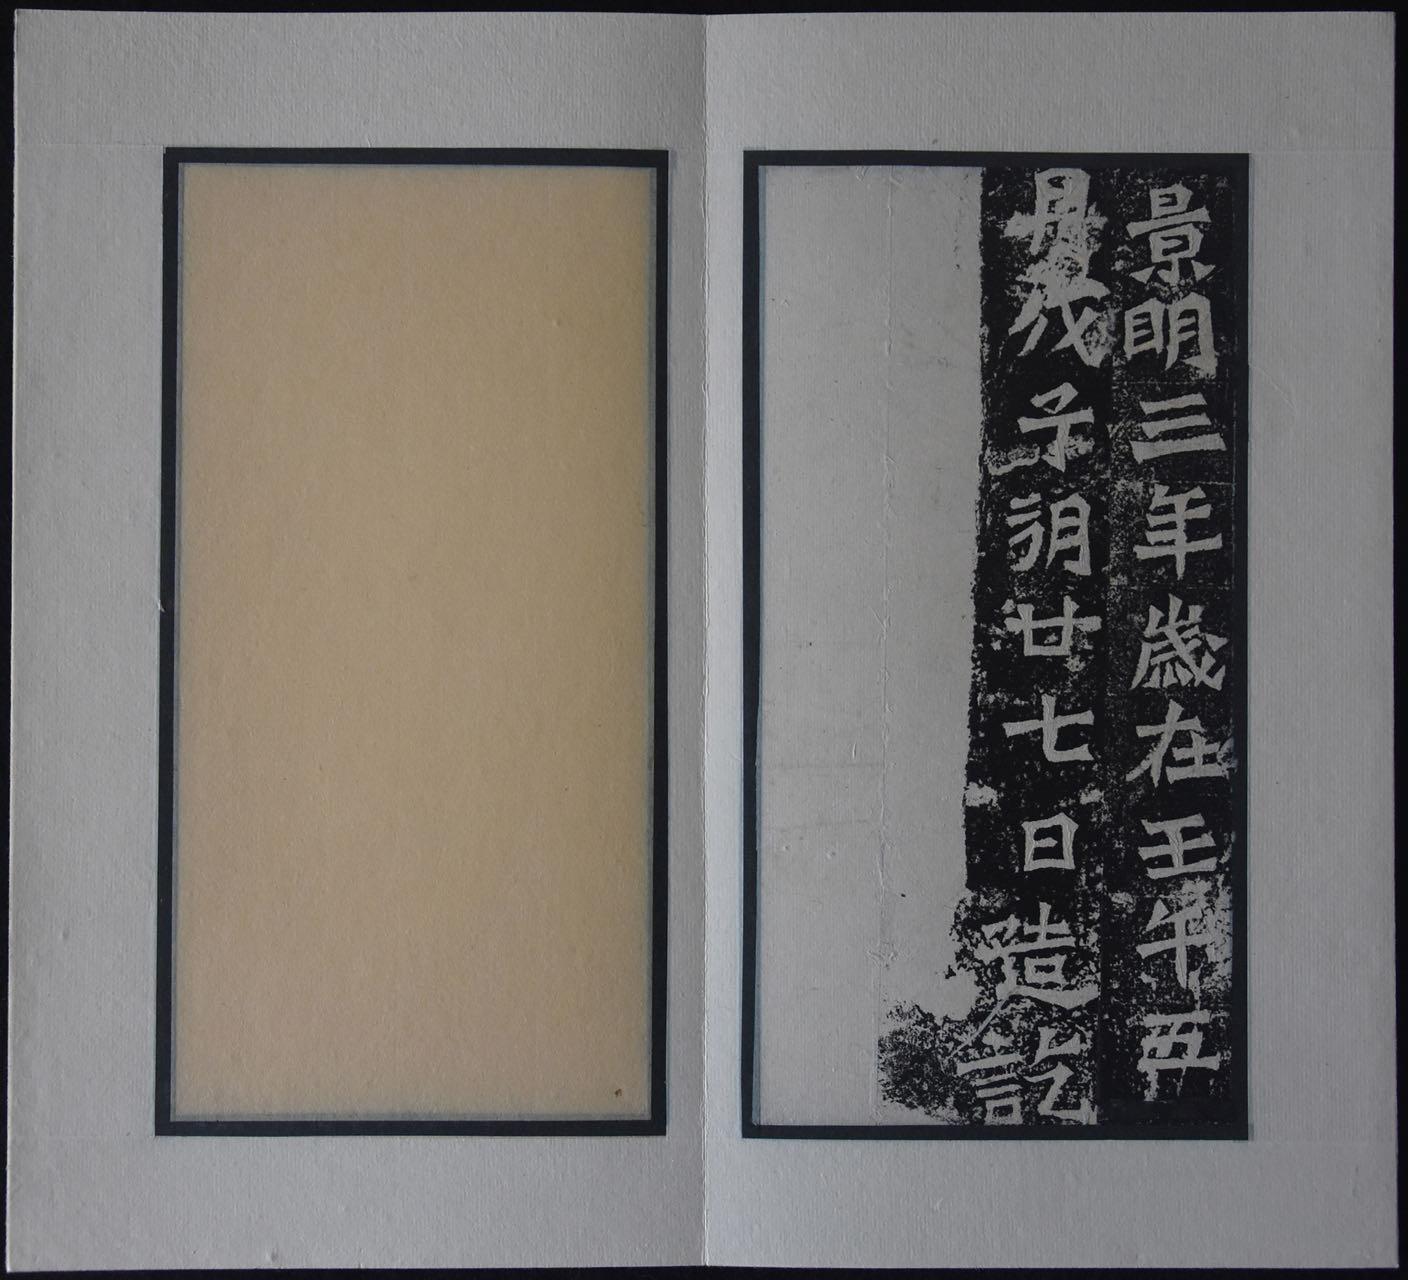 景明三年歲在壬午五
月戊子朔廿七日造訖